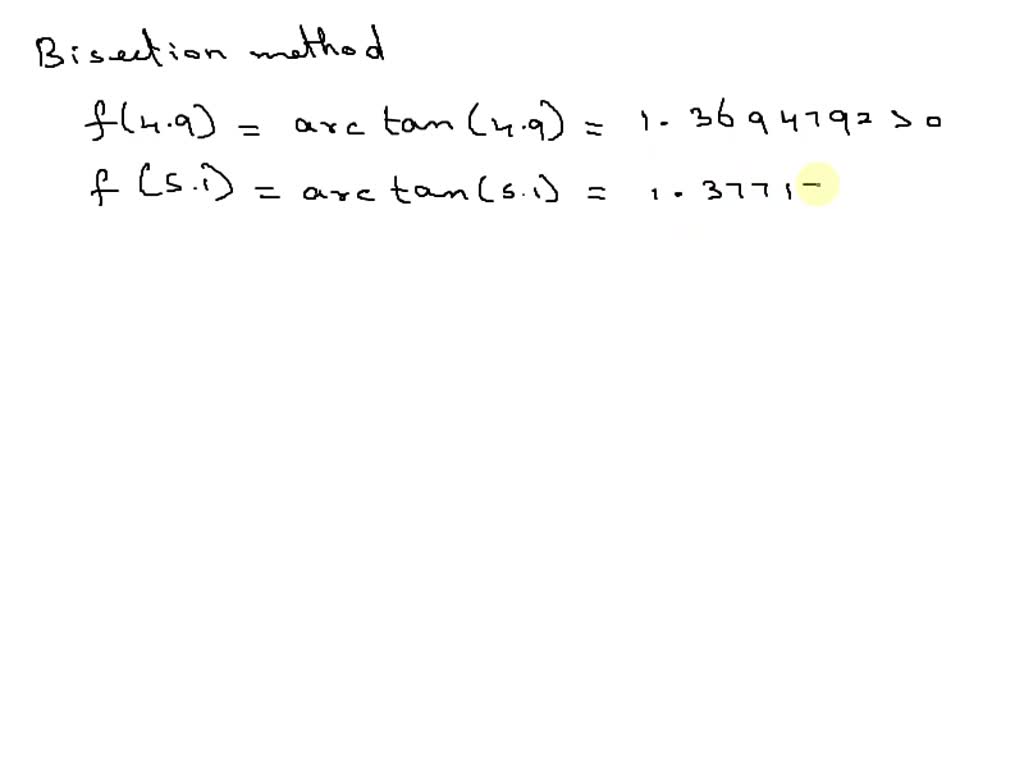 Bisection method
f(4.9) = arc tan(4.9) = 1.3694792 > 0
f(5.1) = arc tan(5.1) = 1.3771